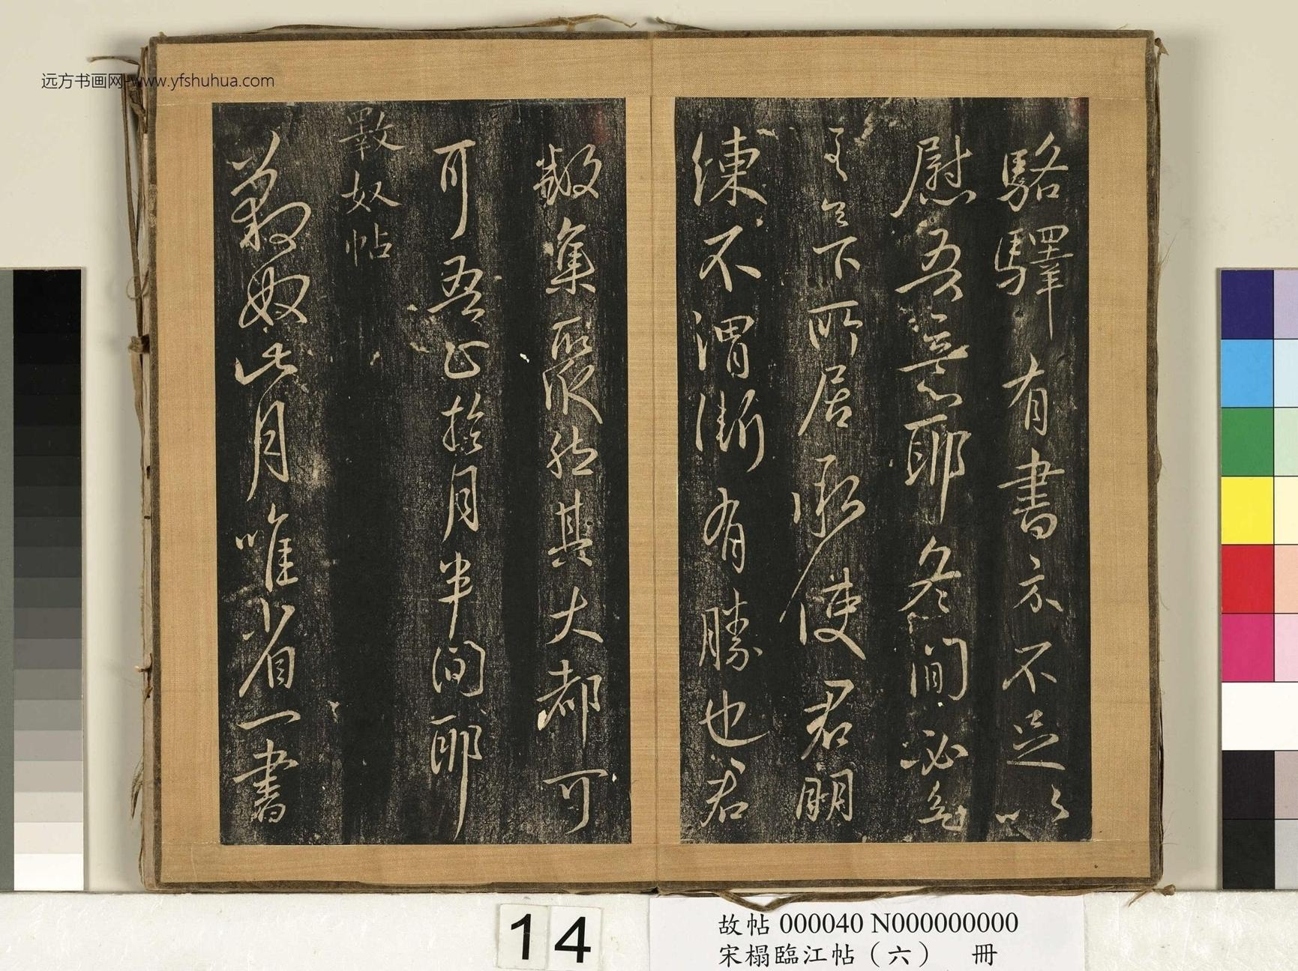 远方书画网-www.yfshuhua.com
駱驛有書示不足以
慰吾意耶冬間必
下所居使君明
練不謂漸有勝也君
數集聚其大都可
可吾月半間耶
奴帖
奴此月唯省一書
14
故帖 000040 N000000000
宋榻臨江帖（六） 冊